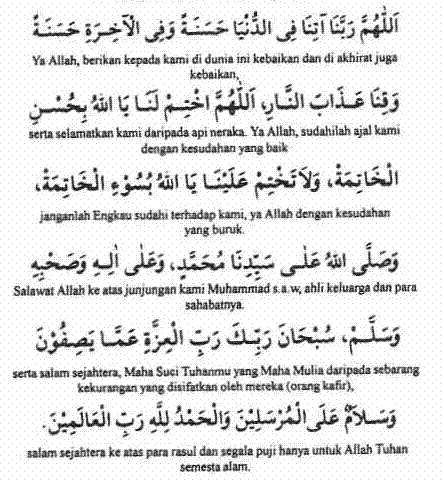 اَللّٰهُمَّ رَبَّنَا آتِنَا فِى الدُّنْيَا حَسَنَةً وَفِى الْآخِرَةِ حَسَنَةً
Ya Allah, berikan kepada kami di dunia ini kebaikan dan di akhirat juga
kebaikan,
وَقِنَا عَذَابَ النَّارِ، اَللّٰهُمَّ اخْتِمْ لَنَا يَا اللهُ بِحُسْنِ
serta selamatkan kami daripada api neraka. Ya Allah, sudahilah ajal kami
dengan kesudahan yang baik
الْخَاتِمَةْ، وَلَا تَخْتِمْ عَلَيْنَا يَا اللهُ بِسُوْءِ الْخَاتِمَةْ،
janganlah Engkau sudahi terhadap kami, ya Allah dengan kesudahan
yang buruk.
وَصَلَّى اللهُ عَلَى سَيِّدِنَا مُحَمَّدٍ، وَعَلَى اٰلِهِ وَصَحْبِهِ
Salawat Allah ke atas junjungan kami Muhammad s.a.w, ahli keluarga dan para
sahabatnya.
وَسَلَّمْ، سُبْحَانَ رَبِّكَ رَبِّ الْعِزَّةِ عَمَّا يَصِفُوْنَ
serta salam sejahtera, Maha Suci Tuhanmu yang Maha Mulia daripada sebarang
kekurangan yang disifatkan oleh mereka (orang kafir),
وَسَلَامٌ عَلَى الْمُرْسَلِيْنَ وَالْحَمْدُ لِلّٰهِ رَبِّ الْعَالَمِيْنَ.
salam sejahtera ke atas para rasul dan segala puji hanya untuk Allah Tuhan
semesta alam.